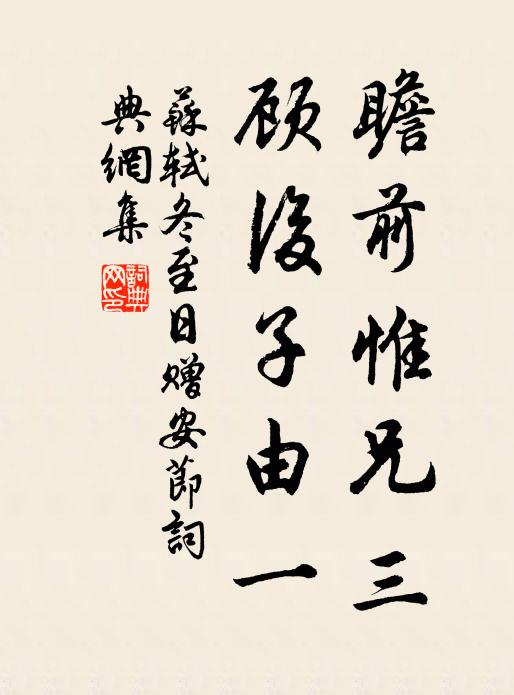 瞻前惟兄三
顾後子由一
蘇軾冬至日赠安節詞
典網集
詞典网印